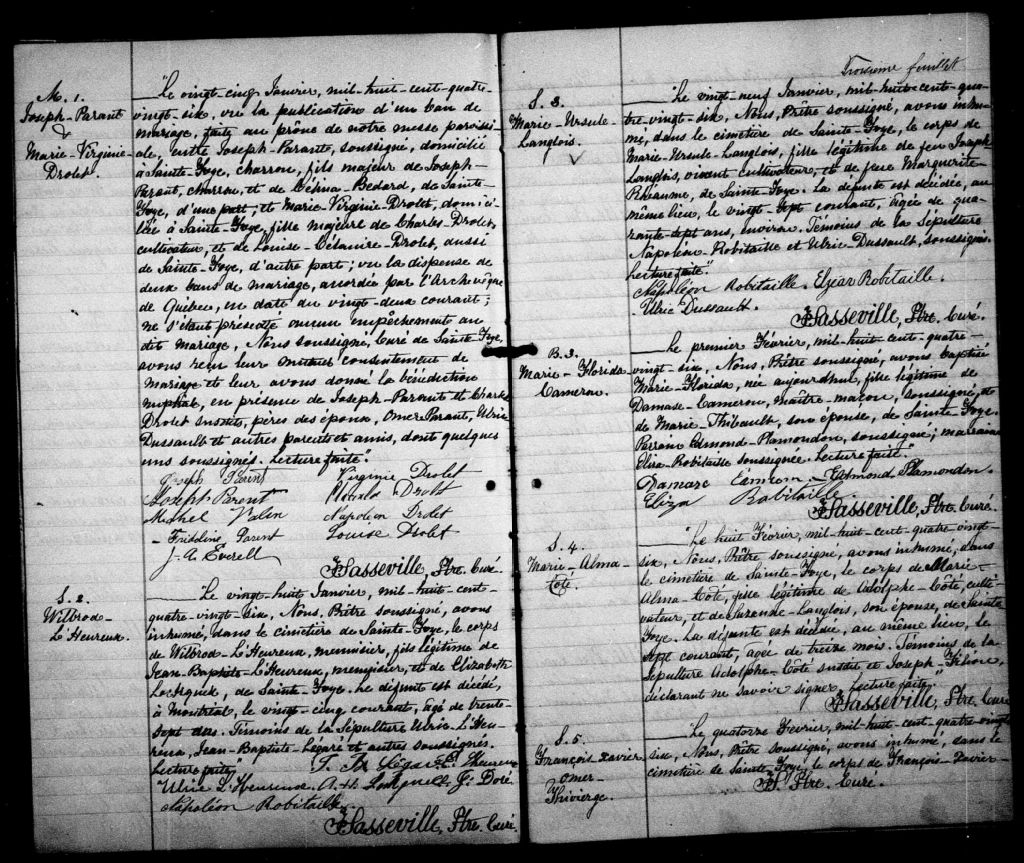 M. 1.
Joseph-Parant
&
Marie-Virginie-
Drolet.
Le vingt-cinq Janvier, mil-huit-cent-quatre-
vingt-six, vu la publication d'un ban de
mariage, faite au prône de notre messe paroissi-
ale, entre Joseph-Parant, soussigné, domicilié
à Sainte-Foye, charron, fils majeur de Joseph-
Parant, charron, et de Célina-Bedard, de Sainte-
Foye, d'une part; et Marie-Virginie-Drolet, domici-
liée à Sainte-Foye, fille majeure de Charles-Drolet,
cultivateur, et de Louise-Célanire-Drolet, aussi
de Sainte-Foye, d'autre part; vu la dispense de
deux bans de mariage, accordée par l'Archevêque
de Québec, en date du vingt-deux courant;
ne s'étant présenté aucun empêchement au
dit mariage, Nous soussigné, Curé de Sainte-Foye,
avons reçu leur mutuel consentement de
mariage et leur avons donné la bénédiction
nuptiale, en présence de Joseph-Parant et Charles
Drolet susdits, pères des époux, Omer Parant, Ulric
Dussault et autres parents et amis, dont quelques
uns soussignés. Lecture faite.
Joseph Parent Virginie Drolet
Joseph Parent Charles Drolet
Michel Valin Napoléon Drolet
Fridoline Parent Louise Drolet
J. A. Everell
Sasseville, Ptre. Curé.
S. 2.
Wilbrod-
L'Heureux.
Le vingt-huit Janvier, mil-huit-cent-
quatre-vingt-six, Nous, Prêtre soussigné, avons
inhumé, dans le cimetière de Sainte-Foye, le corps
de Wilbrod-L'Heureux, menuisier, fils légitime de
Jean-Baptiste-L'Heureux, menuisier, et de Elizabeth
de Sainte-Foye. Le défunt est décédé,
à Montréal, le vingt-cinq courant, agé de trente-
sept ans. Témoins de la Sépulture Ulric-L'Heu-
reux, Jean-Baptiste-Légaré et autres soussignés.
Lecture faite.
Ulric L'Heureux. J. Doré
Napoléon Robitaille.
Sasseville, Ptre. Curé.
Troisième feuillet
S. 3.
Marie-Ursule-
Langlois.
Le vingt-neuf Janvier, mil-huit-cent-qua-
tre-vingt-six, Nous, Prêtre soussigné, avons inhu-
mé, dans le cimetière de Sainte-Foye, le corps de
Marie-Ursule-Langlois, fille légitime de feu Joseph
Langlois, vivant cultivateur, et de feue Marguerite-
Rhéaume, de Sainte-Foye. La défunte est décédée, au
même lieu, le vingt-sept courant, agée de qua-
rante-sept ans, environ. Témoins de la Sépulture
Napoléon-Robitaille et Ulric-Dussault, soussignés.
Lecture faite.
Napoléon Robitaille. Elzéar Robitaille.
Ulric Dussault.
Sasseville, Ptre. Curé.
B. 3.
Marie-Florida
Cameron.
Le premier Février, mil-huit-cent-quatre-
vingt-six, Nous, Prêtre soussigné, avons baptisé
Marie-Florida, née aujourdhui, fille légitime de
Damase-Cameron, maître-maçon, soussigné, et
de Marie-Thibault, son épouse, de Sainte-Foye.
Parrain Edmond-Plamondon, soussigné; marraine
Eliza-Robitaille soussignée. Lecture faite.
Damase Camron Edmond Plamondon.
Eliza Robitaille.
Sasseville, Ptre. Curé.
S. 4.
Marie-Alma-
Côté.
Le huit Février, mil-huit-cent-quatre-vingt-
six, Nous, Prêtre soussigné, avons inhumé, dans
le cimetière de Sainte-Foye, le corps de Marie-
Alma-Côté, fille légitime de Adolphe-Côté, culti-
vateur, et de Langlois, son épouse, de Sainte
Foye. La défunte est décédée, au même lieu, le
sept courant, agée de treize mois. Témoins de la
Sépulture Adolphe-Côté susdit et Joseph
déclarant ne savoir signer. Lecture faite.
Sasseville, Ptre. Curé
S. 5.
François-Xavier
Omer-
Thivierge.
Le quatorze Février, mil-huit-cent-quatre-vingt-
six, Nous, Prêtre soussigné, avons inhumé, dans le
cimetière de Sainte-Foye, le corps de François-Xavier-
Ptre. Curé.